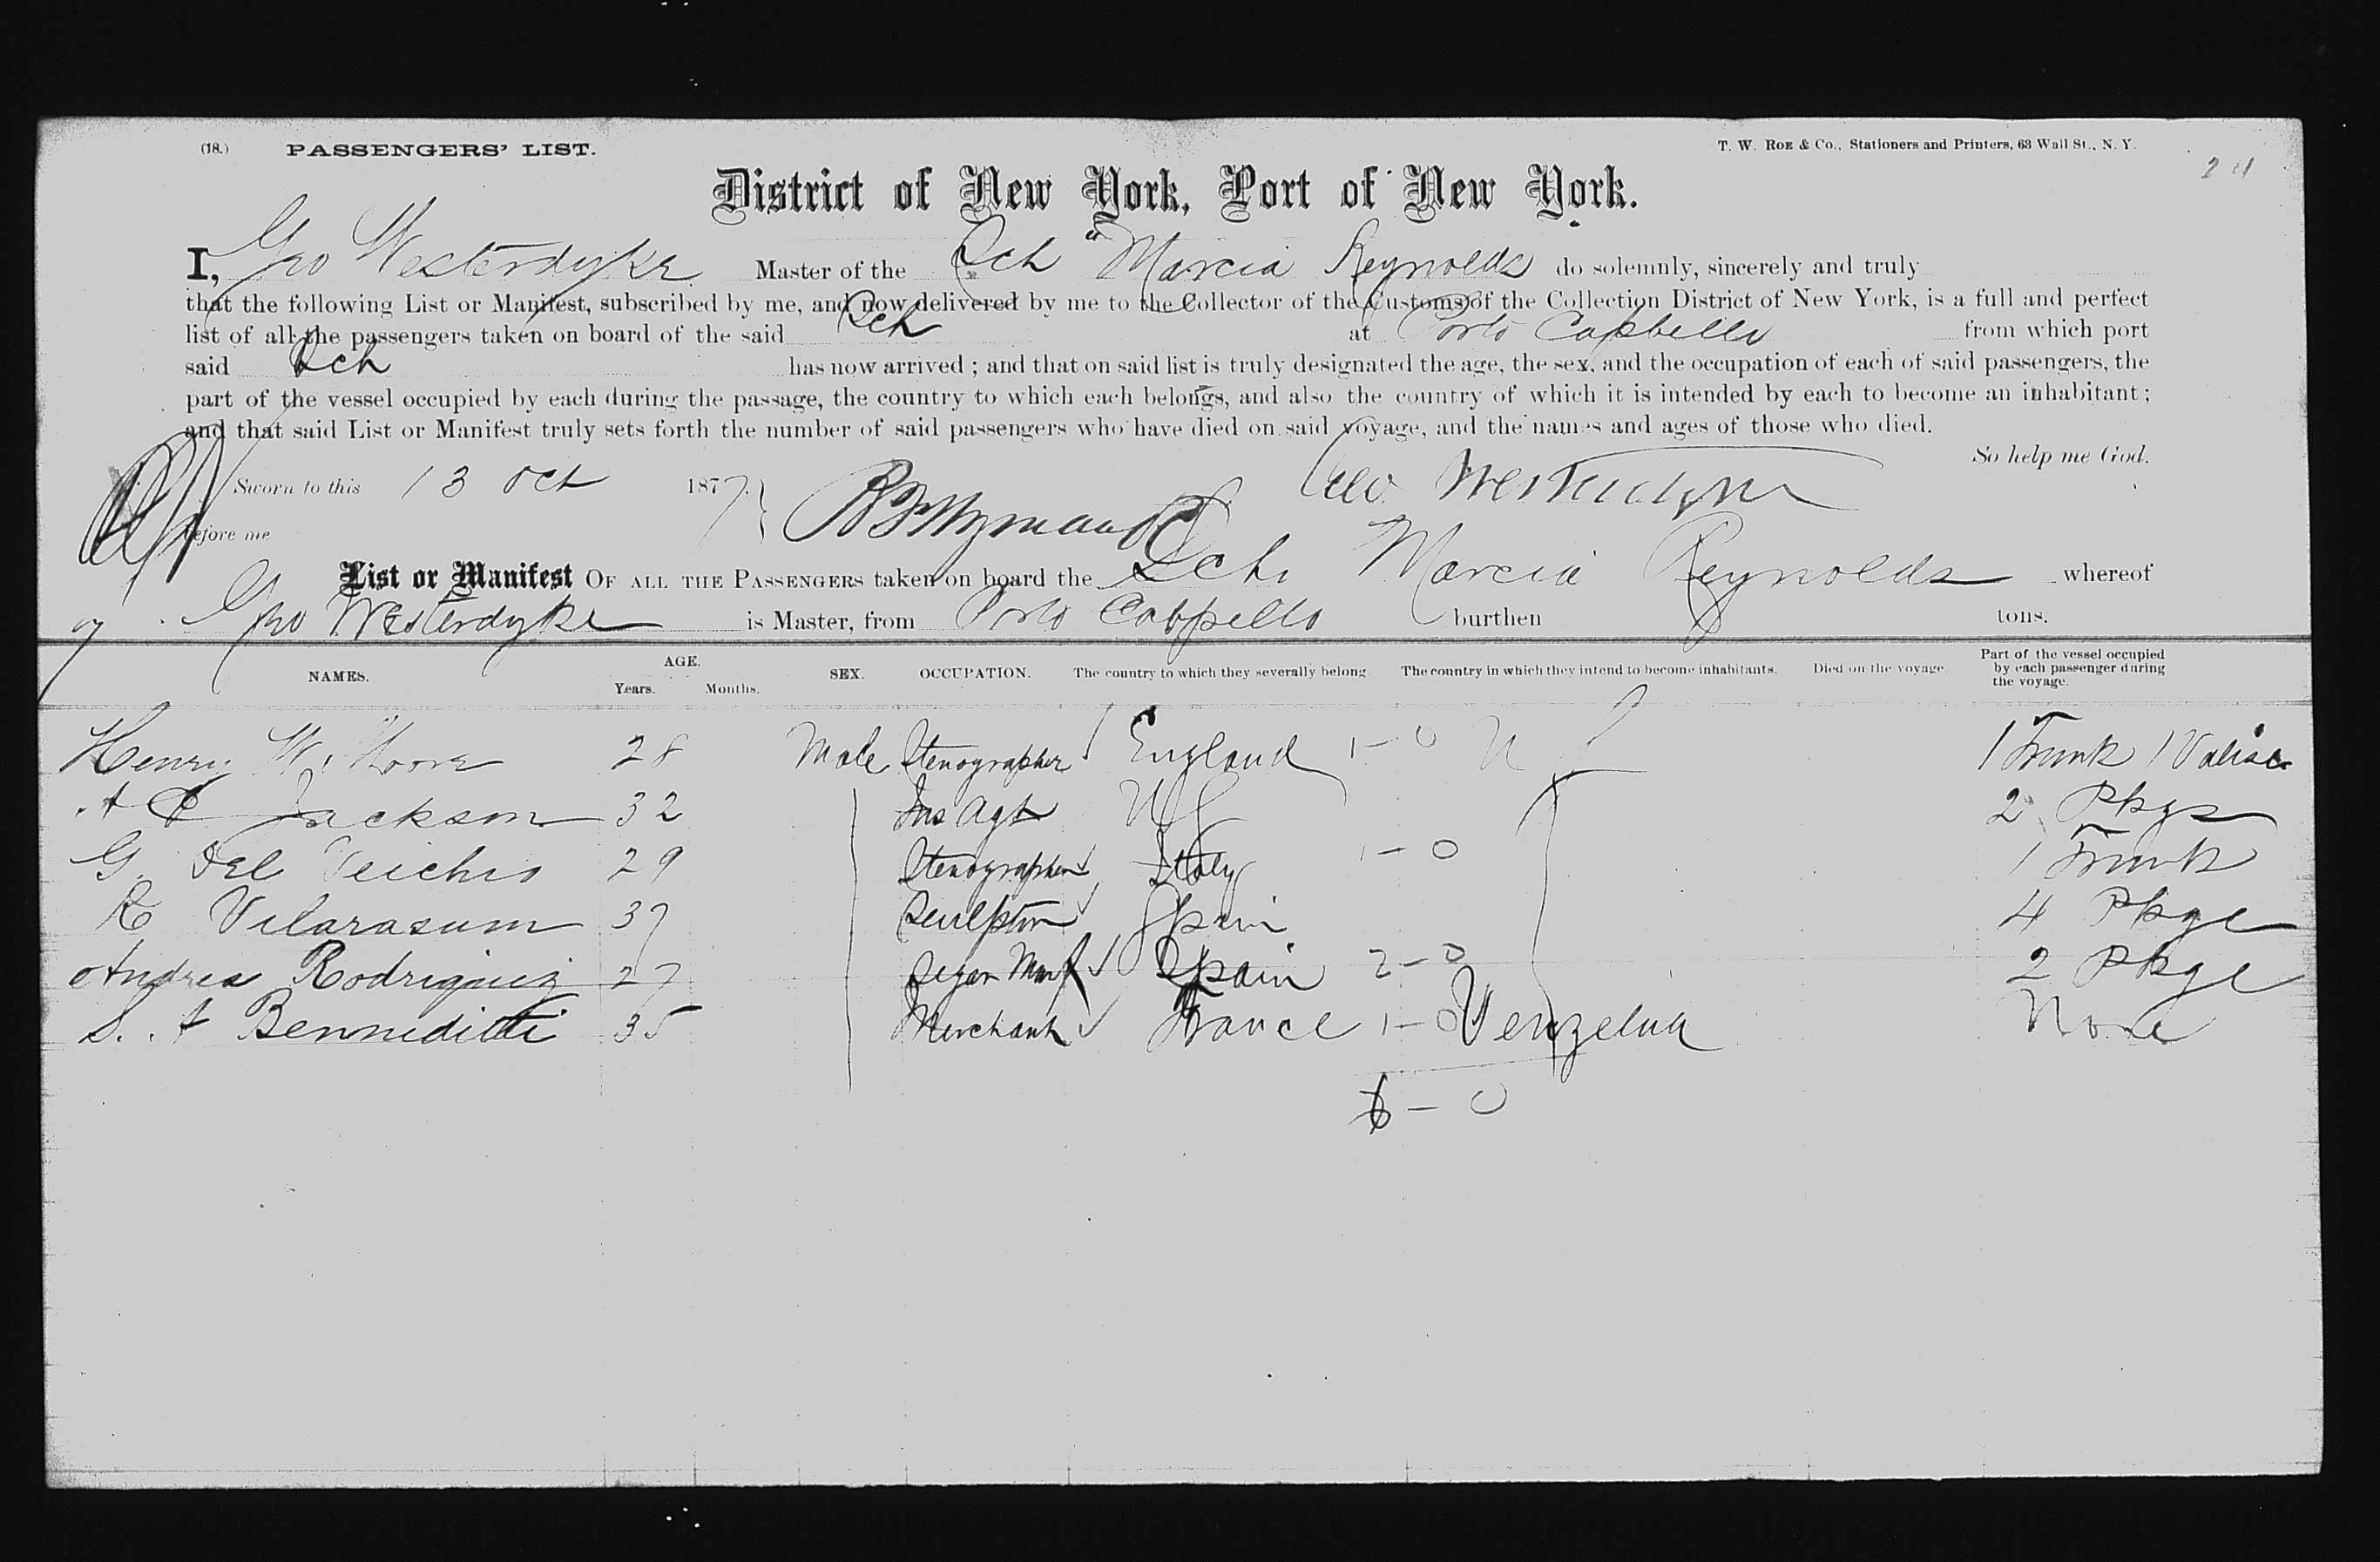 (18.) PASSENGERS' LIST. T. W. ROE & Co., Stationers and Printers, 63 Wall St., N. Y.
District of New York, Port of New York.
I, Geo Westerdyke Master of the Sch "Marcia Reynolds do solemnly, sincerely and truly
that the following List or Manifest, subscribed by me, and now delivered by me to the Collector of the Customs of the Collection District of New York, is a full and perfect
list of all the passengers taken on board of the said Sch at Porto Cabbello from which port
said Sch has now arrived ; and that on said list is truly designated the age, the sex, and the occupation of each of said passengers, the
part of the vessel occupied by each during the passage, the country to which each belongs, and also the country of which it is intended by each to become an inhabitant ;
and that said List or Manifest truly sets forth the number of said passengers who have died on said voyage, and the names and ages of those who died.
So help me God.
Sworn to this 13 Oct 1877. Geo Westerdyke
before me
List or Manifest OF ALL THE PASSENGERS taken on board the Sch Marcia Reynolds whereof
Geo Westerdyke is Master, from Porto Cabbello burthen tons.
NAMES. AGE. Years. Months. SEX. OCCUPATION. The country to which they severally belong. The country in which they intend to become inhabitants. Died on the voyage. Part of the vessel occupied by each passenger during the voyage.
Henry W. Moore 28 Male Stenographer England 1-0 U S 1 Trunk 1 Valise
A C Jackson 32 Ins Agt U S 2 Pkgs
G. Del Veichio 29 Stenographer Italy 1-0 1 Trunk
R Vilarasum 37 Sculptor Spain 4 Pkge
Andrea Rodriguiz 27 Segar Manf Spain 2-0 2 Pkge
S. A Bennediti 35 Merchant France 1-0 Venzelua None